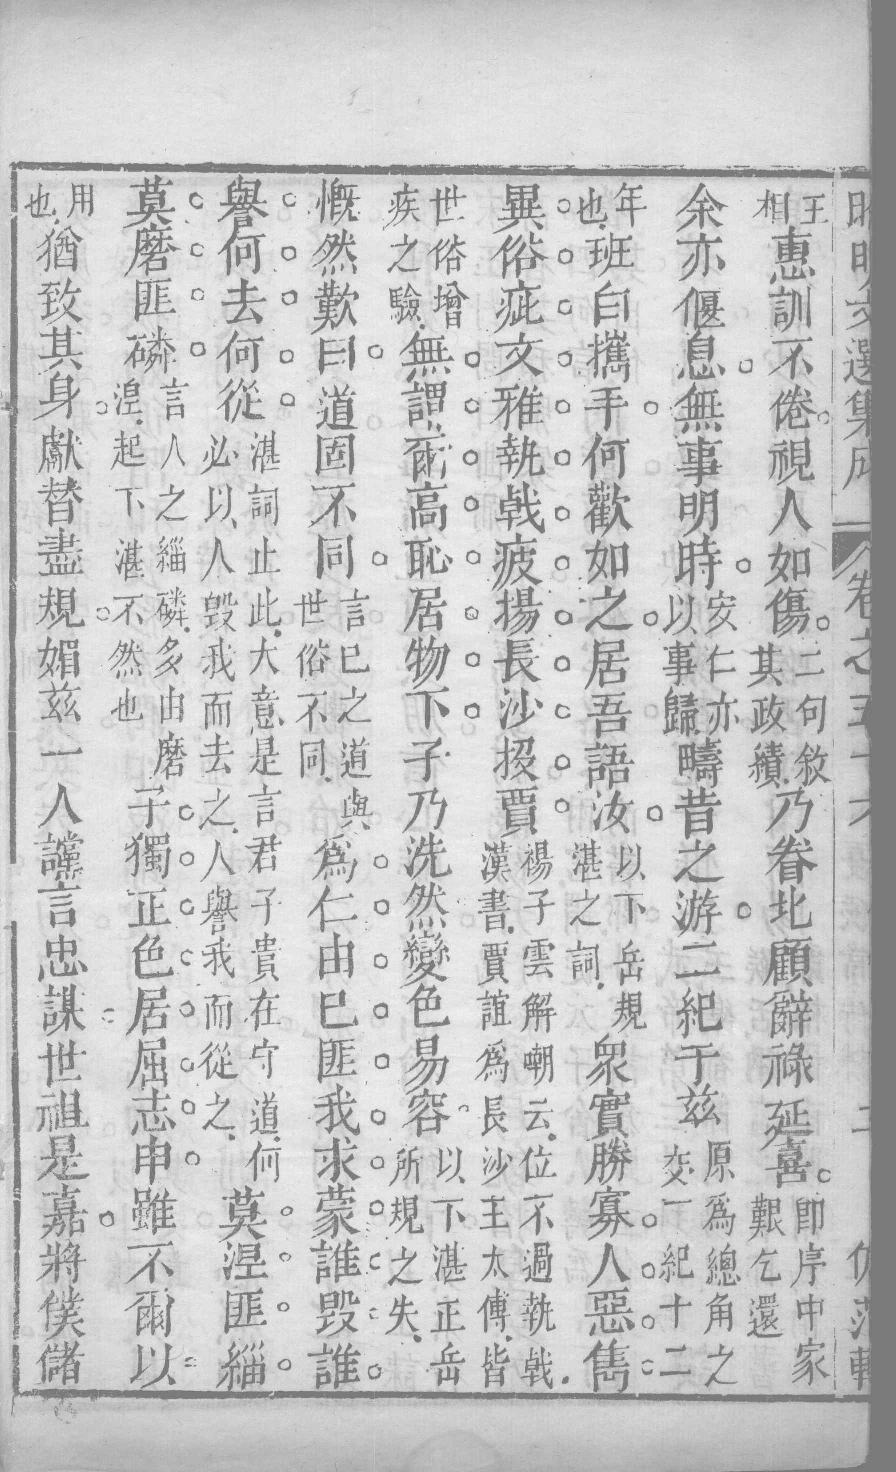 昭明文選集成　卷之五十六　二　仿范軒
王相惠訓不倦視人如傷二句敘其政績乃眷北顧辭祿延喜卽序中家艱乞還
余亦偃息無事明時安仁亦以事歸疇昔之游二紀于茲原爲總角之交一紀十二
年也班白攜手何歡如之居吾語汝以下岳規湛之詞衆實勝寡人惡雋
異俗疵文雅執戟疲揚長沙投賈楊子雲解嘲云位不過執戟漢書賈誼爲長沙王太傅皆
世俗增疾之驗無謂爾高恥居物下子乃洗然變色易容以下湛正岳所規之失
慨然歎曰道固不同言已之道與世俗不同爲仁由已匪我求蒙誰毀誰
譽何去何從湛詞止此大意是言君子貴在守道何必以人毀我而去之人譽我而從之莫涅匪緇
莫磨匪磷言人之緇磷多由磨涅起下湛不然也子獨正色居屈志申雖不爾以
用也猶致其身獻替盡規媚茲一人讜言忠謀世祖是嘉將僕儲